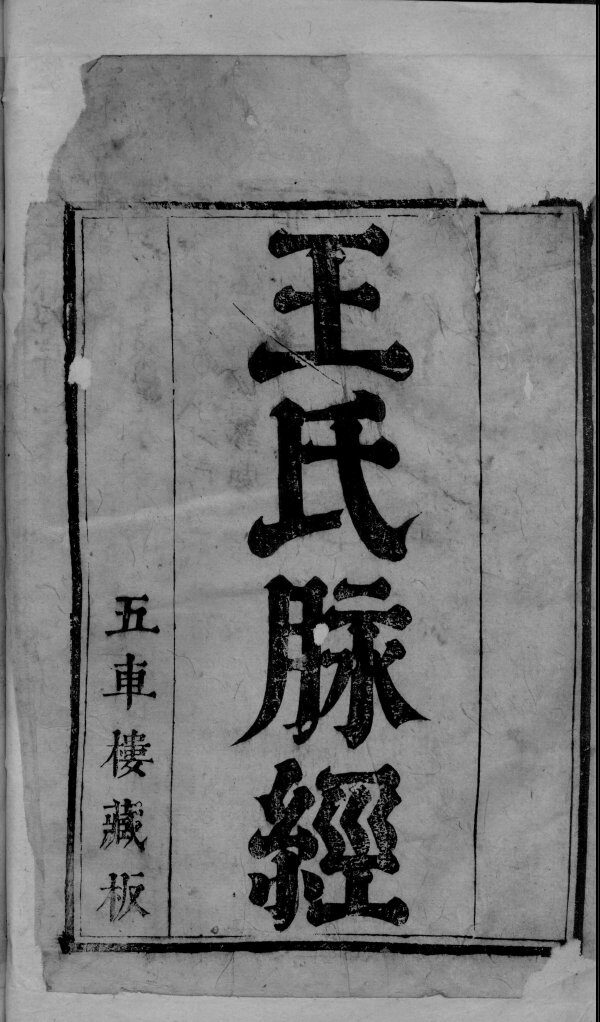 王氏脉經
五車樓藏板